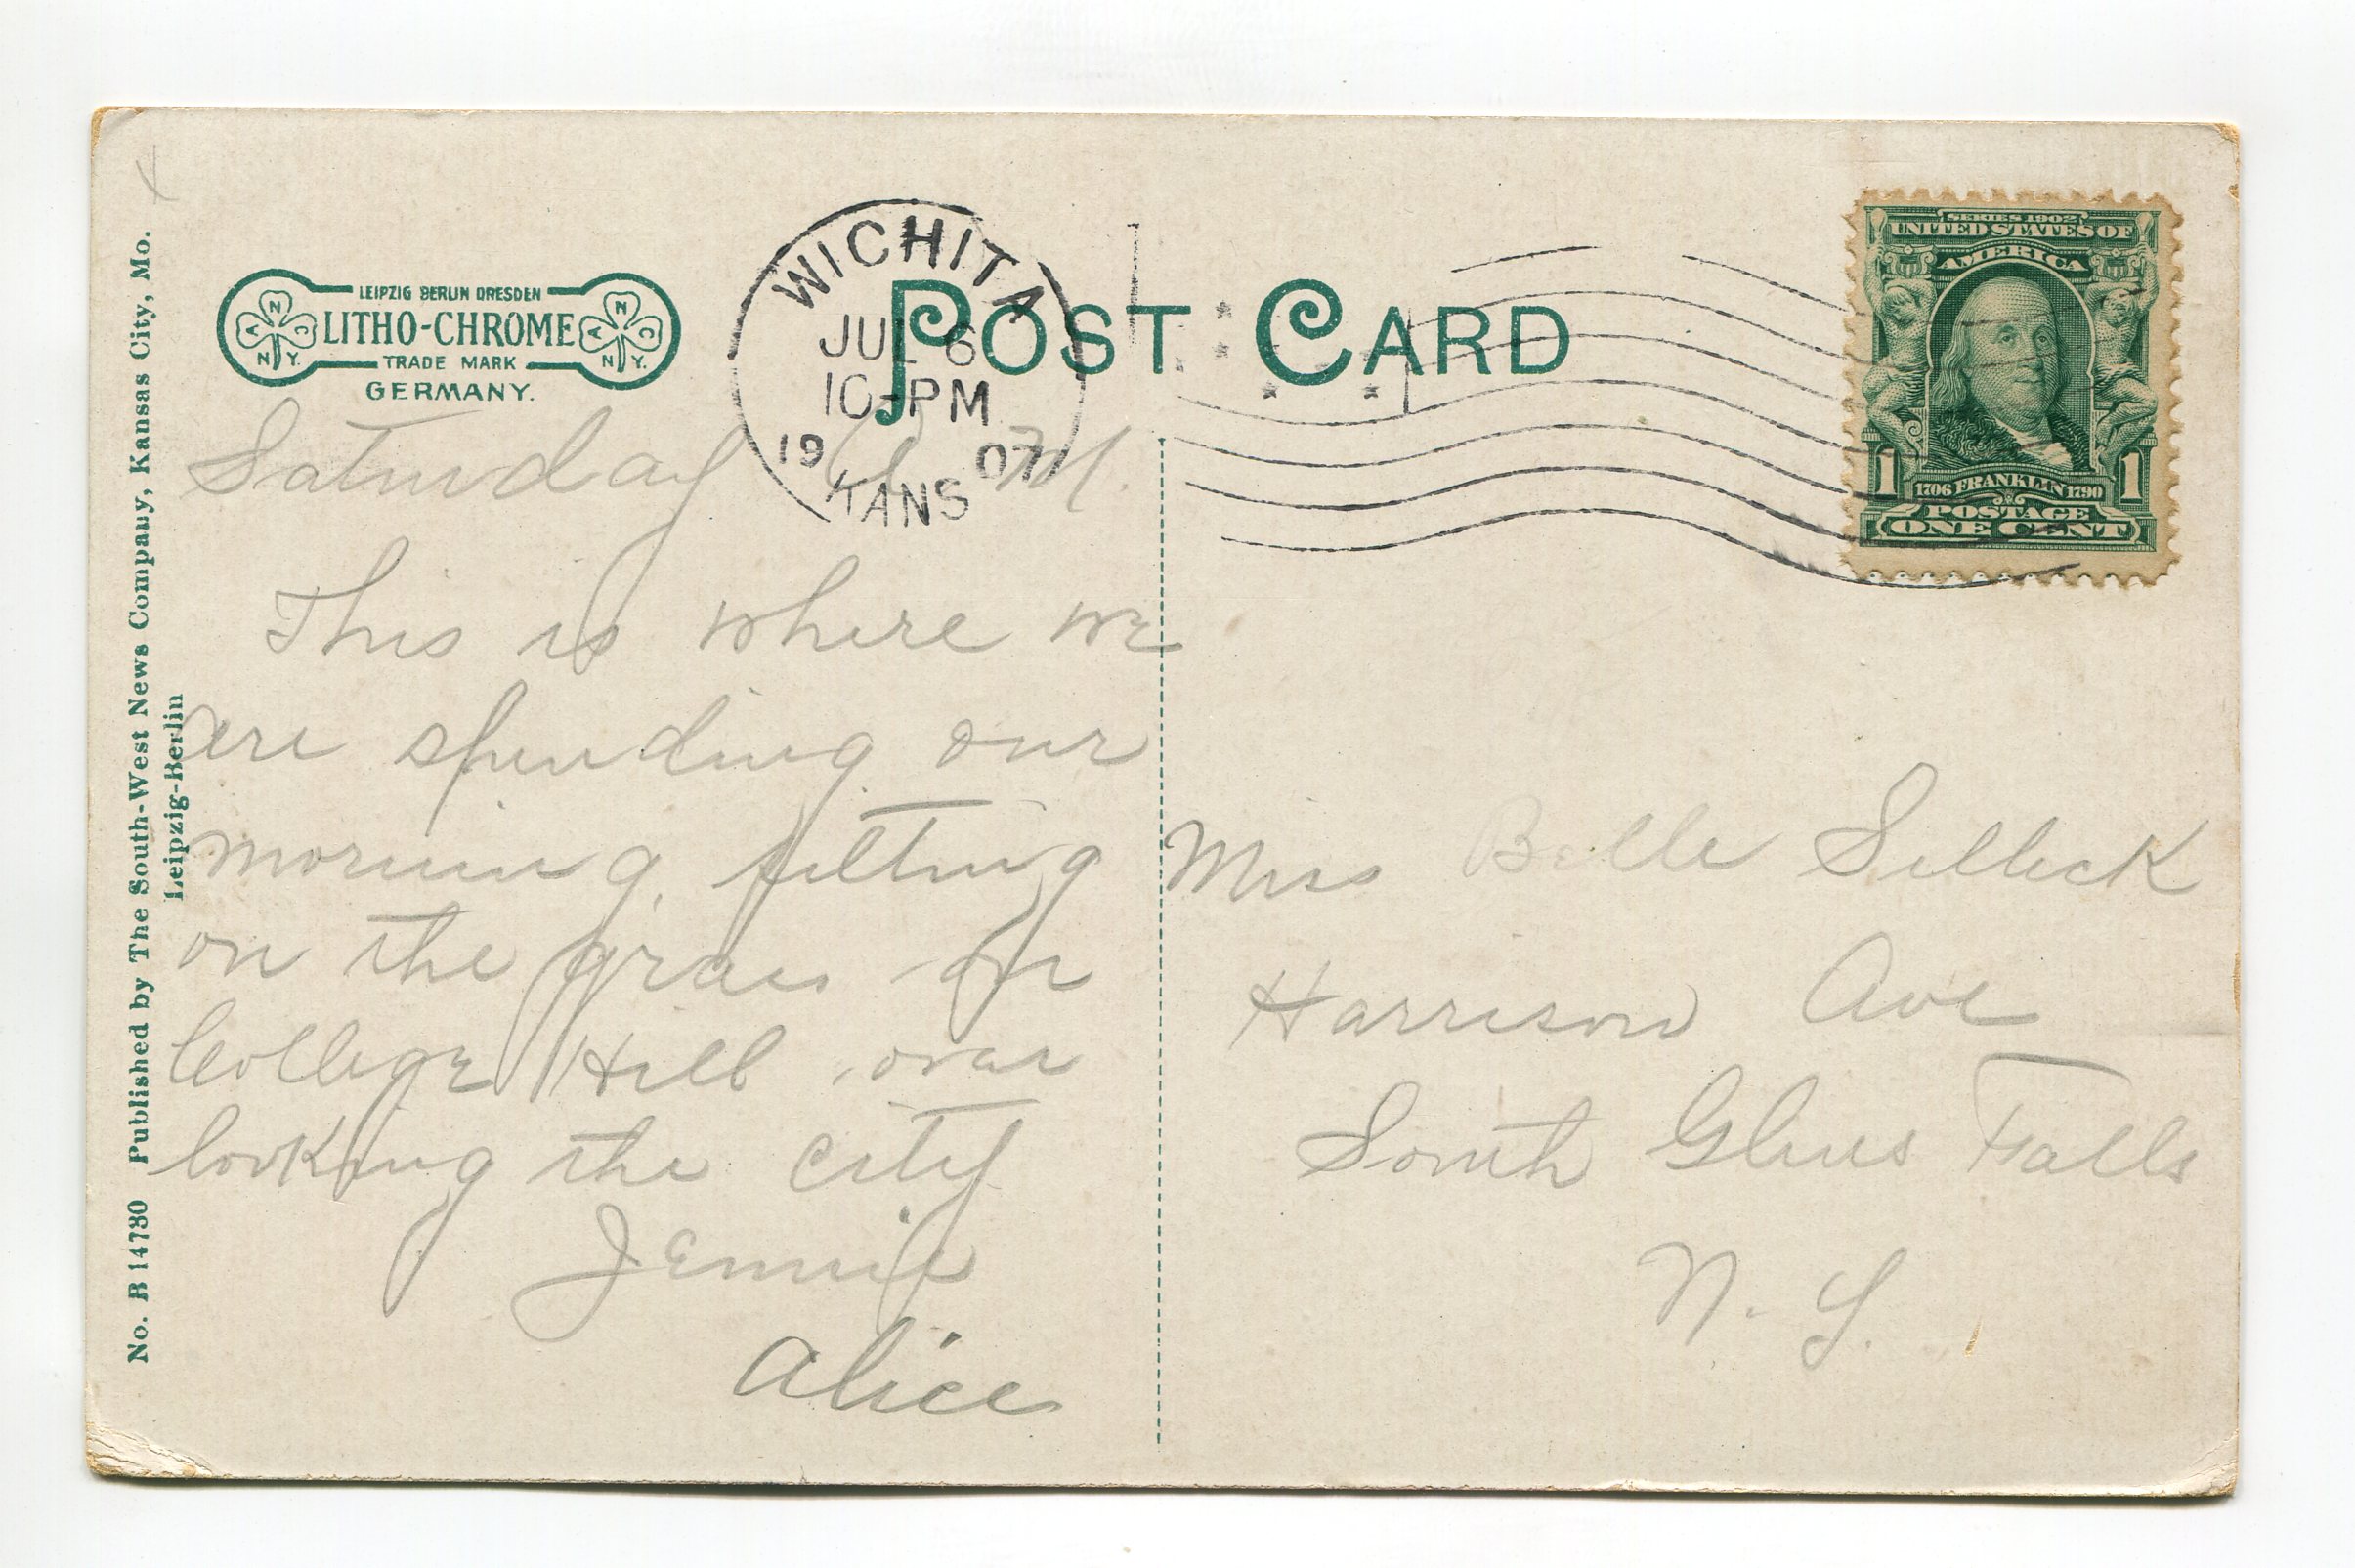 No. B 14780 Published by The South-West News Company, Kansas City, Mo.
Leipzig-Berlin
LEIPZIG BERLIN DRESDEN
LITHO-CHROME
TRADE MARK
GERMANY.
A N C
N Y.
A N C
N Y.
POST CARD
WICHITA
JUL 6
10-PM
1907
KANS
SERIES 1902
UNITED STATES OF
AMERICA
1 1
1706 FRANKLIN 1790
POSTAGE
ONE CENT
Saturday A. M.
This is where we
are spending our
morning, sitting
on the grass on
College Hill over
looking the city
Jennie
Alice
Miss Belle Selleck
Harrison Ave
South Glens Falls
N. Y.